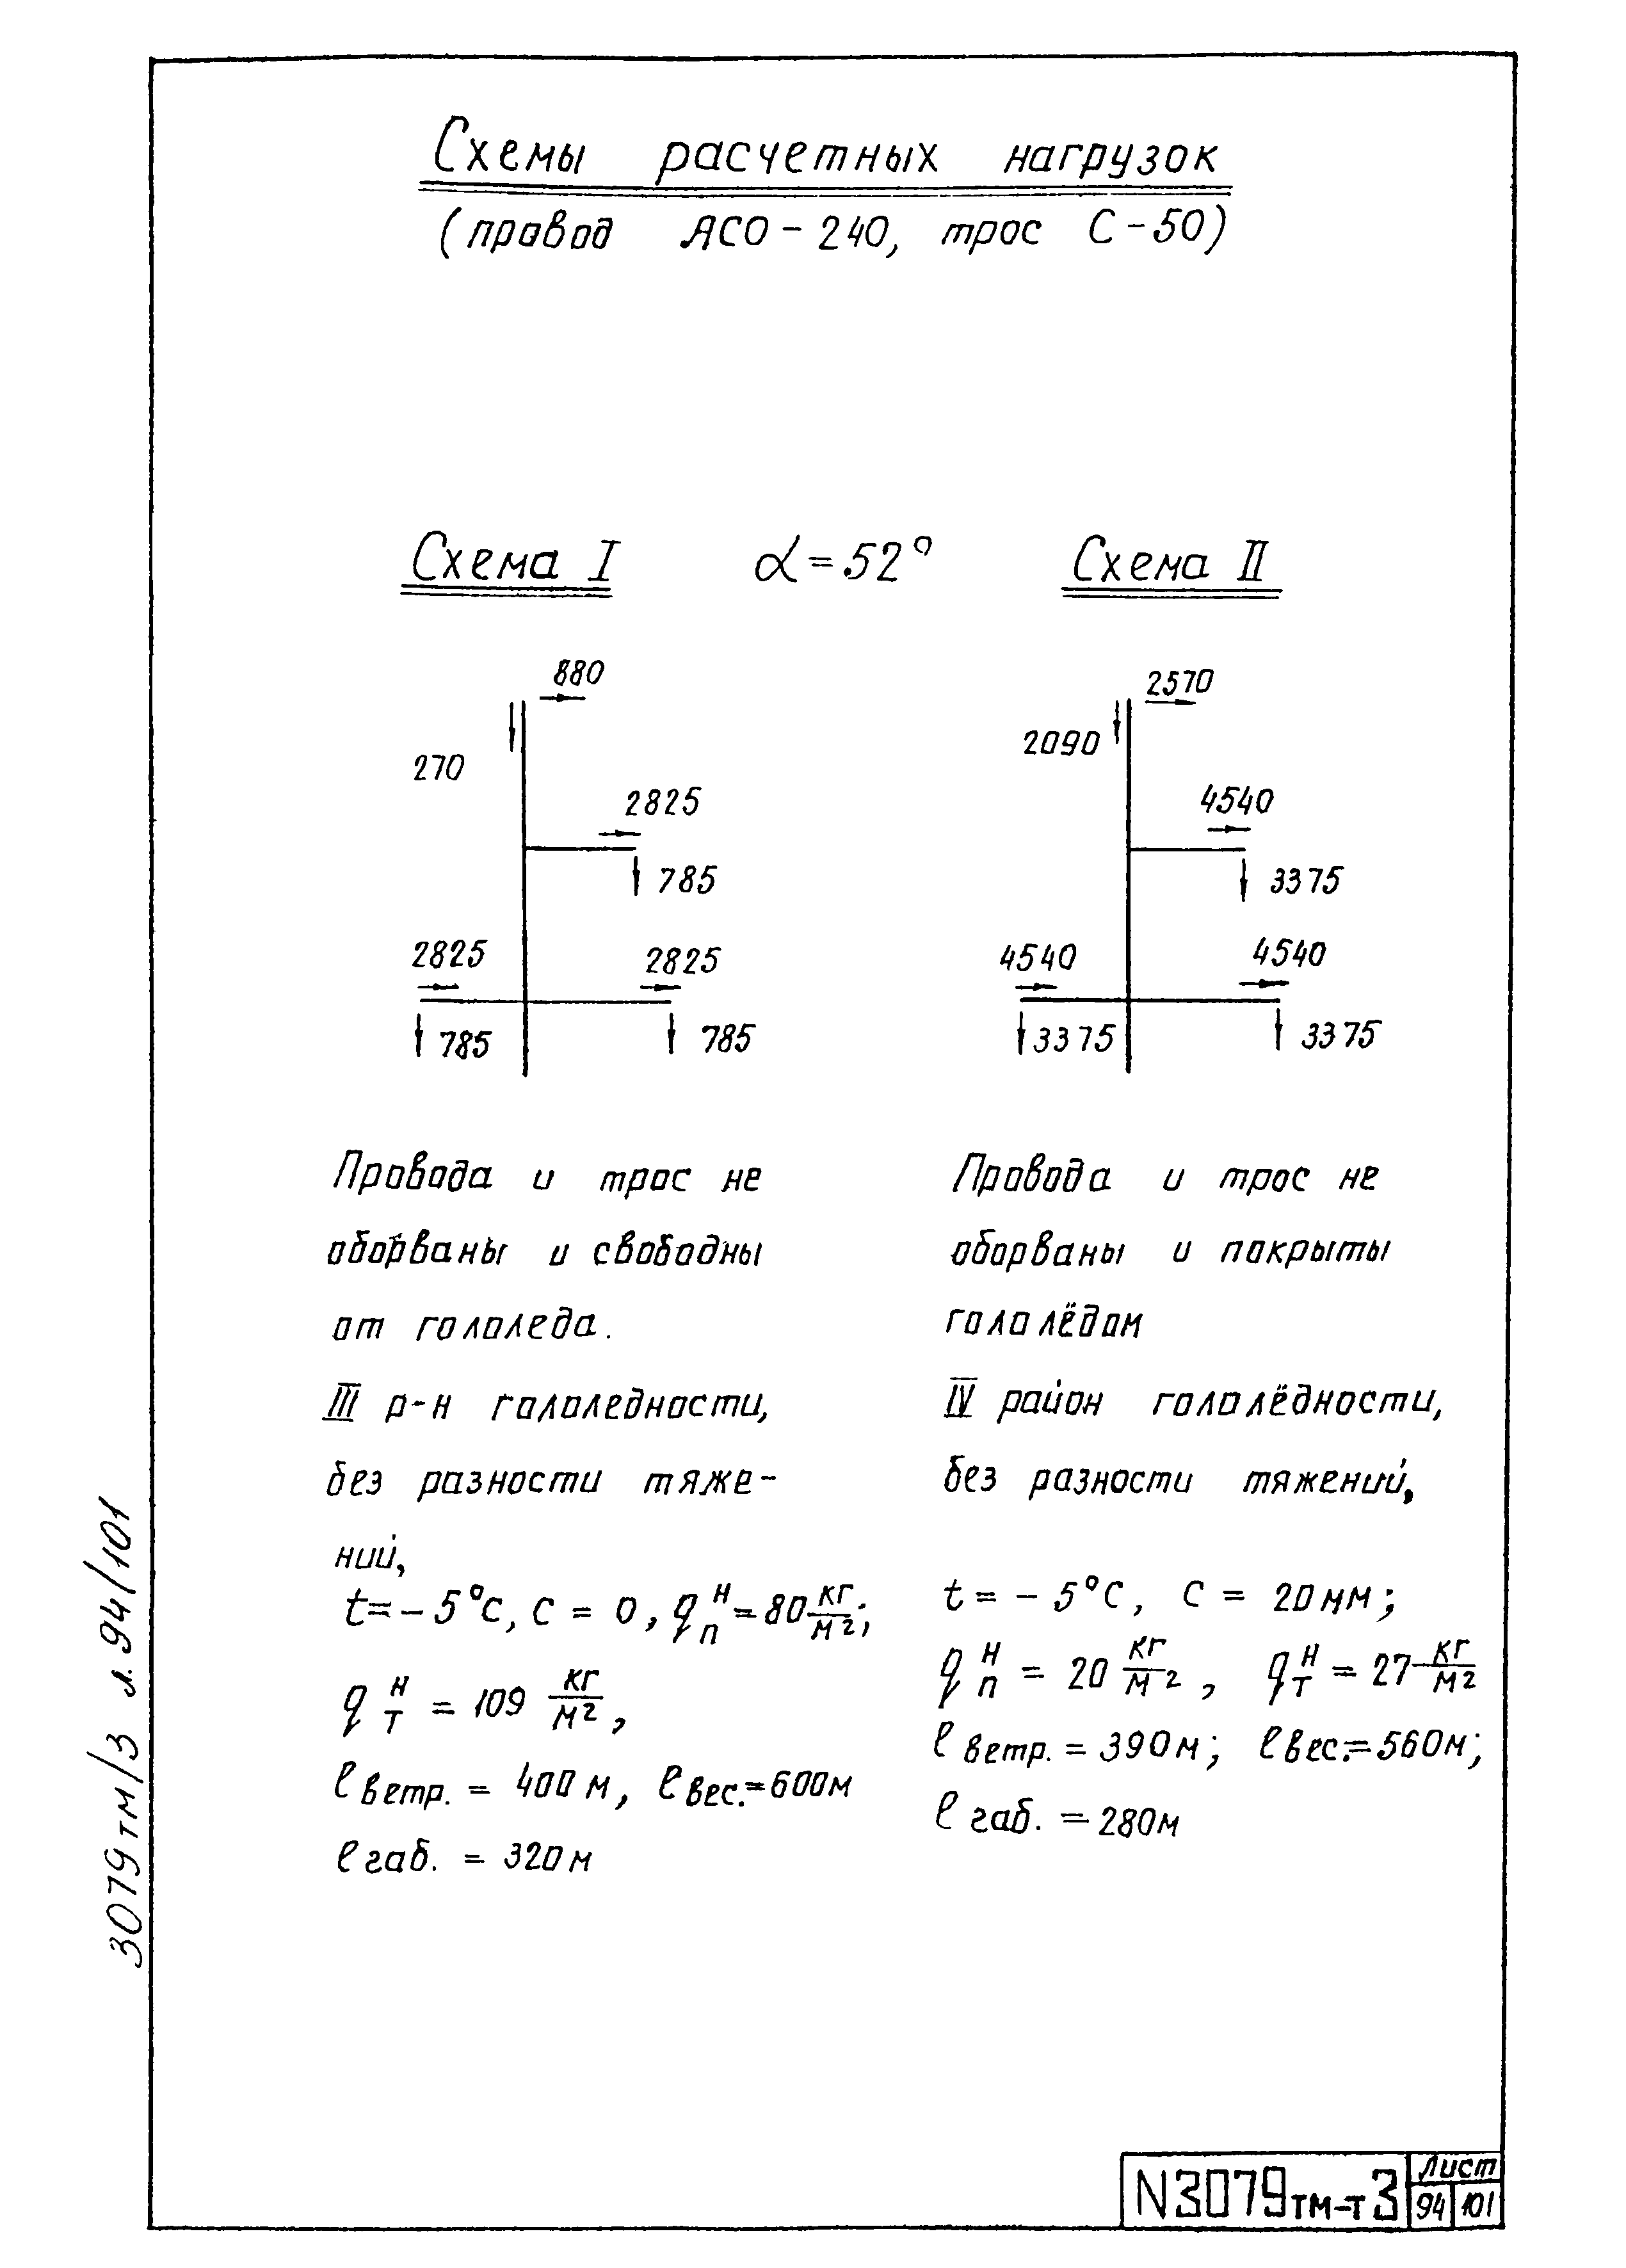 Схемы расчетных нагрузок
(провод АСО-240, трос С-50)
Схема I α=52° Схема II
880
270
2825
785
2825
2825
785
785
2570
2090
4540
3375
4540
4540
3375
3375
Провода и трос не
оборваны и свободны
от гололеда.
III р-н гололедности,
без разности тяже-
ний,
t=-5°C, C = 0, qпᴴ=80 кг/м²;
qтᴴ = 109 кг/м²,
ℓветр. = 400 м, ℓвес.=600м
ℓгаб. = 320м
Провода и трос не
оборваны и покрыты
гололёдом
IV район гололёдности,
без разности тяжений,
t = - 5°C, C = 20мм;
qпᴴ = 20 кг/м², qтᴴ = 27 кг/м²
ℓветр. = 390м; ℓвес.=560м;
ℓгаб. = 280м
3079тм/3 л.94/101
N3079тм-т3
Лист
94 101